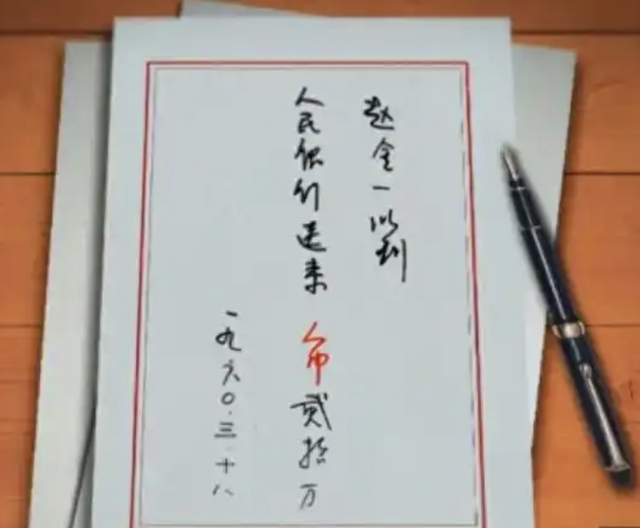 赵全一收到
人民银行送来 币贰拾万
一九六〇.三.十八